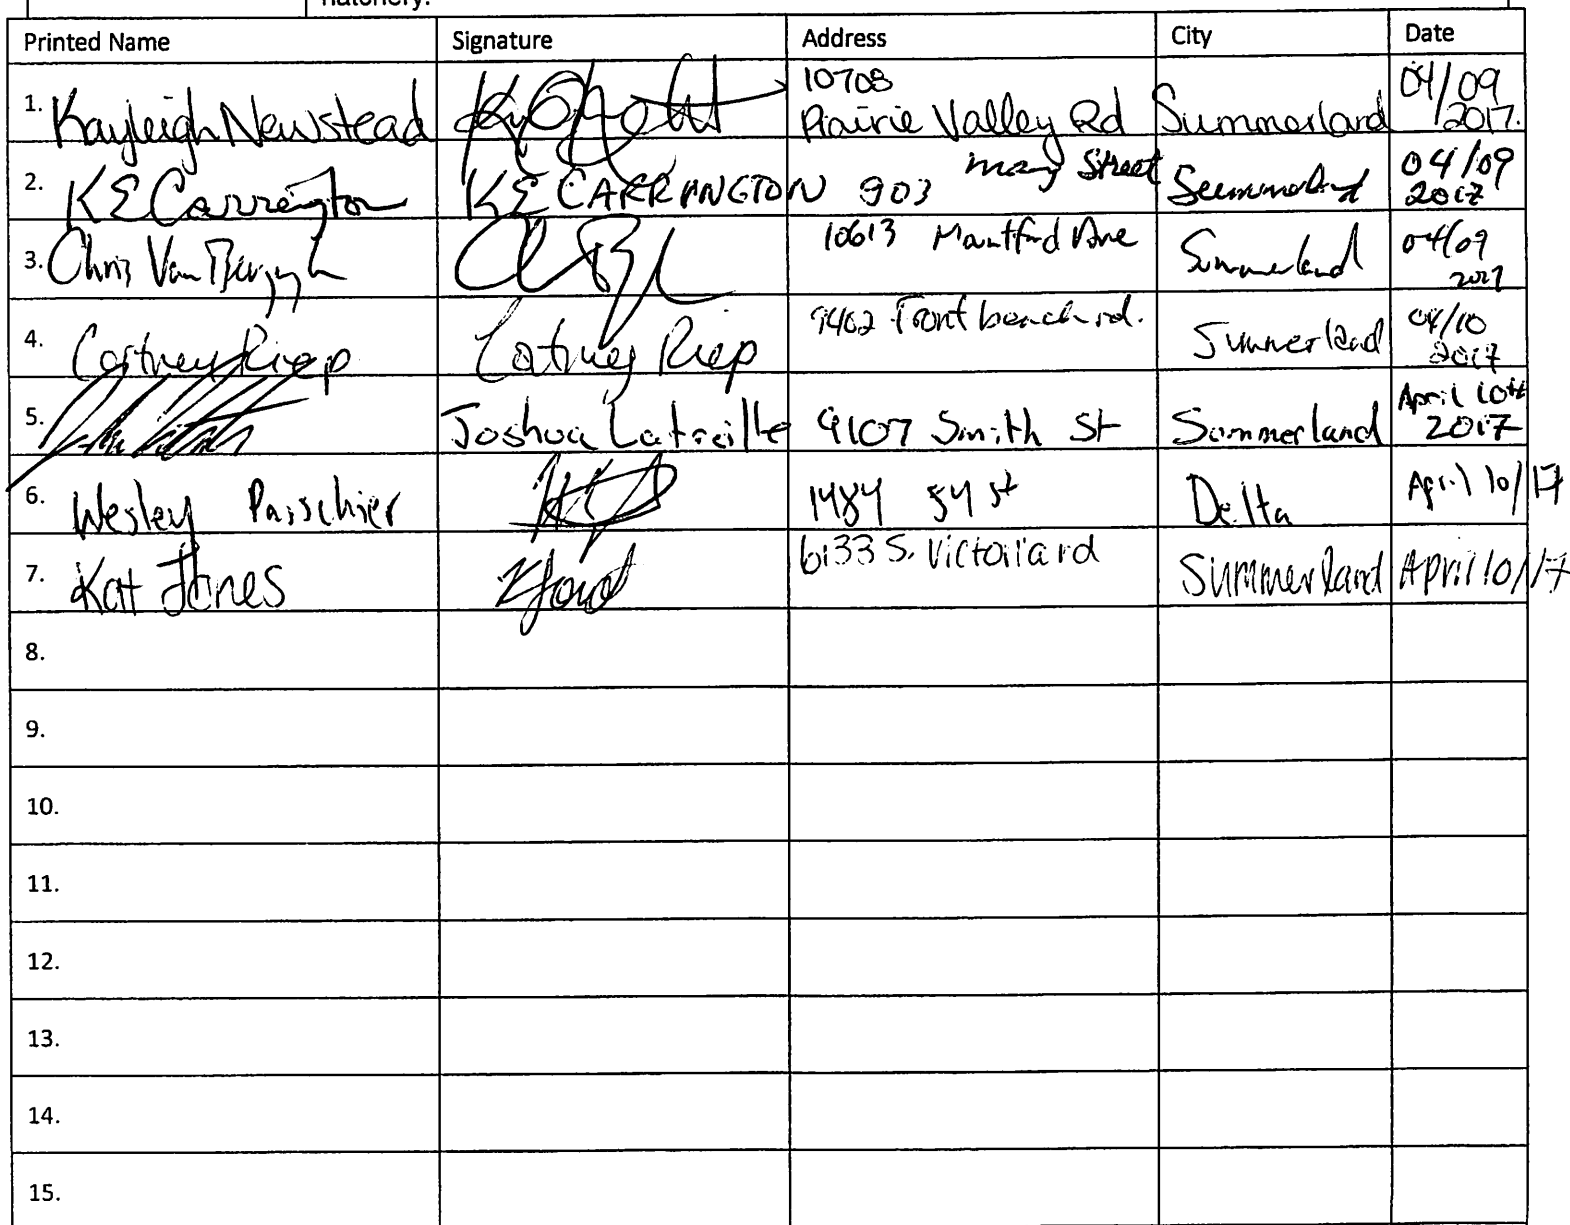 hatchery.
Printed Name Signature Address City Date
1. Kayleigh Newstead 10708 Prairie Valley Rd Summerland 04/09 2017.
2. KE Carrington KE CARRINGTON 903 Street Summerland 04/09 2017
3. Chris Van 10613 Mountford Ave Summerland 04/09 2017
4. Cortney Riep Cortney Riep 9402 Front bench rd. Summerland 04/10 2017
5. Joshua Latreille 9107 Smith St Summerland April 10th 2017
6. Wesley Passchier 1484 54 st Delta April 10/17
7. Kat Jones 6133 S. Victoria rd Summerland April 10/17
8.
9.
10.
11.
12.
13.
14.
15.